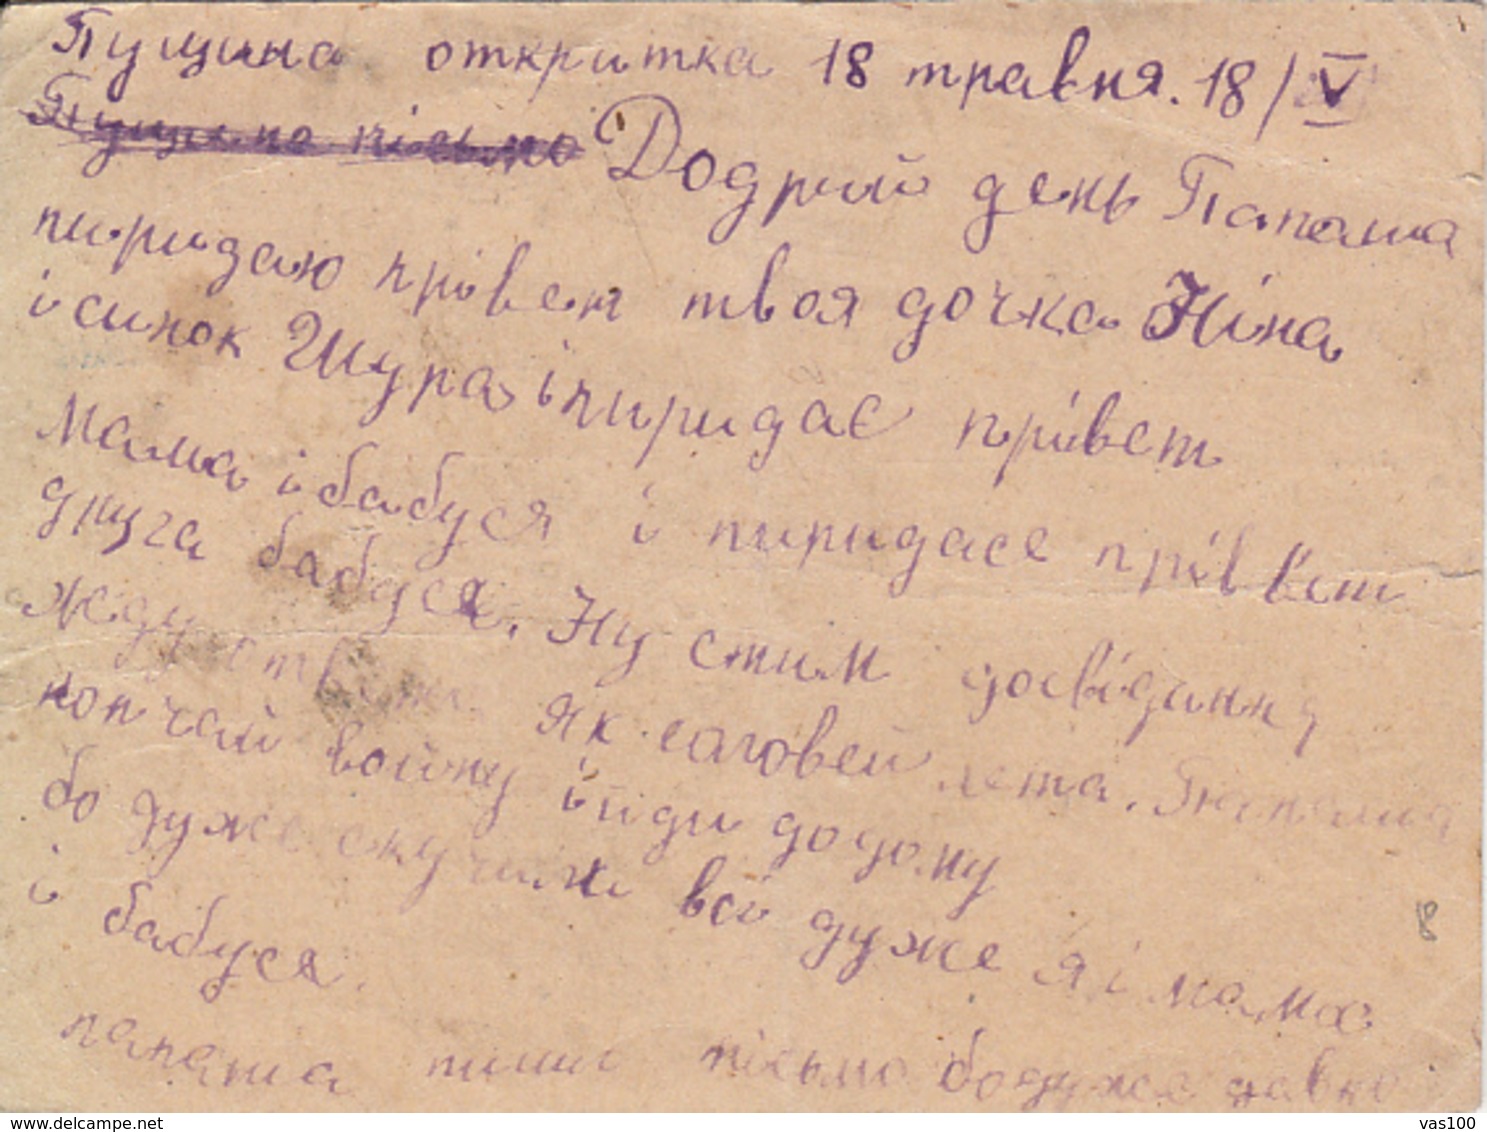 Пущина откритка 18 травня. 18/V
Пущина пісьмо Додрий день Папаша
пиридаю прівет твоя дочка Ніна
і синок Шура і пиридає прівет
мама і бабуся і пиридасе прівет
друга бабуся. Ну стим досвідання
жду ответа як саловей лета. Папаша
кончай войну і йди додому
бо дуже скучили всі дуже я і мама
і бабуся.
папаша пиши пісьмо бо дуже давно
8
www.delcampe.net
vas100